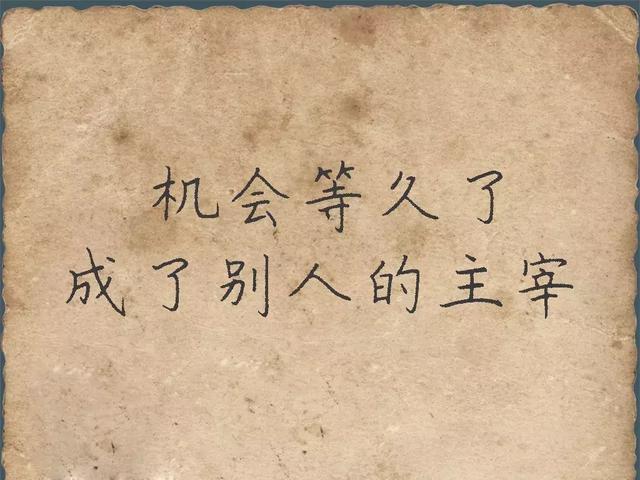 机会等久了
成了别人的主宰